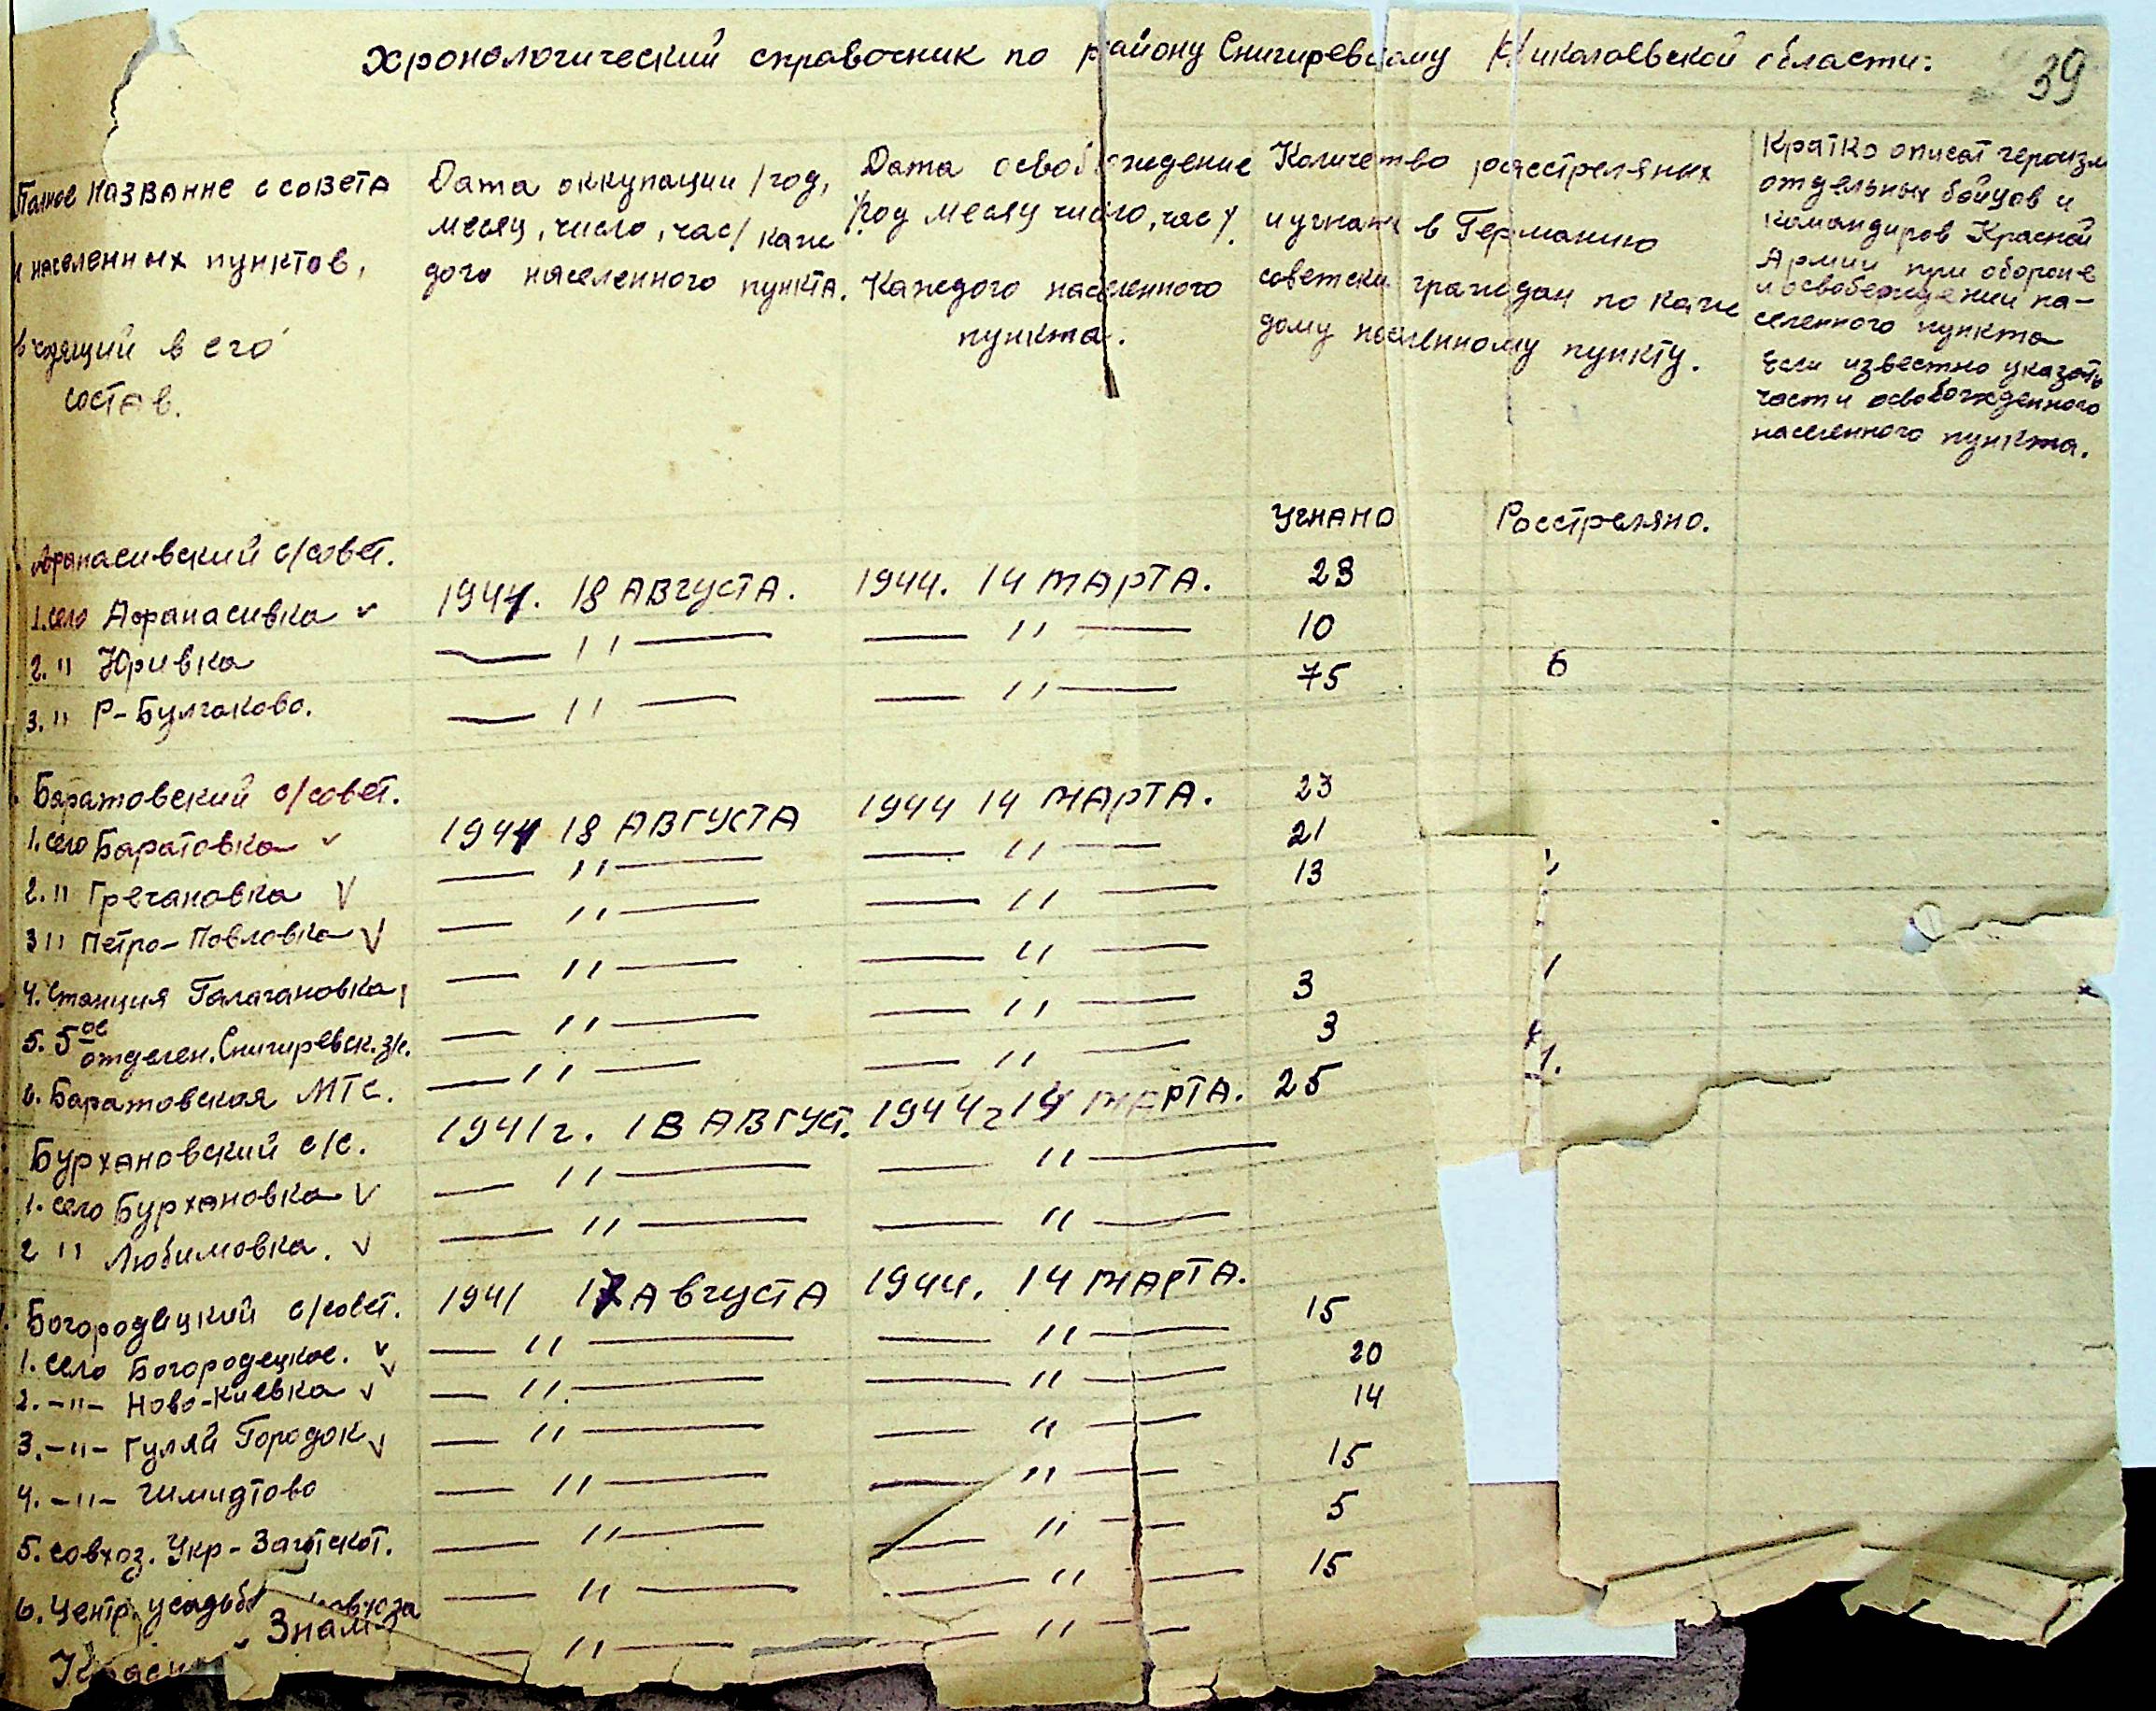 Хронологический справочник по району Снигиревскому Николаевской области.
39
Полное название с совета
и населенных пунктов,
входящий в его
состав.
Дата оккупации /год,
месяц, число, час/ каж
дого населенного пункта.
Дата освобождение
/год месяц число, час/.
Каждого населенного
пункта.
Количество расстреляных
и угнаных в Германию
советских граждан по каж
дому населенному пункту.
Кратко описат героизм
отдельных бойцов и
командиров Красной
Армии при обороне
и освобождении на-
селенного пункта
Если известно указать
части освобожденного
населенного пункта.
Угнано Росстреляно.
Афанасивский с/совет.
1. село Афанасивка ✓ 1941. 18 августа. 1944. 14 марта. 23
2. " Юривка — " — — " — 10
3. " Р-Булгаково. — " — — " — 75 6
Баратовский с/совет.
1. село Баратовка ✓ 1941 18 августа 1944 14 марта. 23
2. " Гречановка V — " — — " — 21
3 " Петро-Повловка V — " — — " — 13
4. Станция Галагановка, — " — — " —
5. 5ое отделен. Снигиревск. з/с. — " — — " — 3
6. Баратовская МТС. — " — — " — 3
Бурхановский с/с. 1941 г. 18 август. 1944 г 14 марта. 25
1. село Бурхановка V — " — — " —
2 " Любимовка. V — " — — " —
Богородецкий с/совет. 1941 17 августа 1944. 14 марта.
1. село Богородецкое. ✓ — " — — " — 15
2. -"- Ново-Киевка ✓ — " — — " — 20
3. -"- Гуляй Городок V — " — — " — 14
4. -"- Шмидтово — " — — " — 15
5. совхоз. Укр-Заготскот. — " — — " — 5
6. Центр. усадьба совхоза — " — — " — 15
Знамя — " — — " —